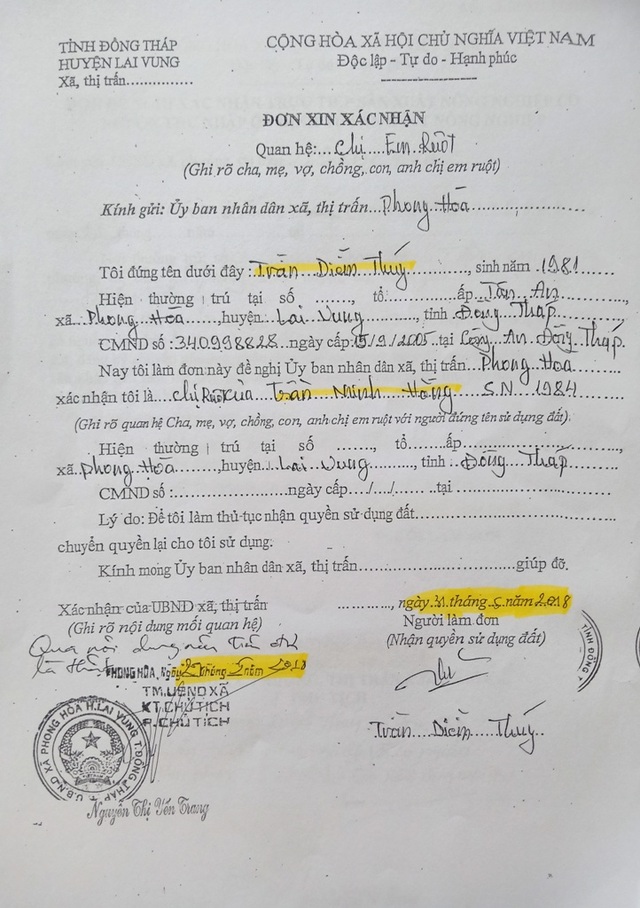 TỈNH ĐỒNG THÁP
HUYỆN LAI VUNG
Xã, thị trấn...............
CỘNG HÒA XÃ HỘI CHỦ NGHĨA VIỆT NAM
Độc lập - Tự do - Hạnh phúc
ĐƠN XIN XÁC NHẬN
Quan hệ:...Chị....Em..Ruột
(Ghi rõ cha, mẹ, vợ, chồng, con, anh chị em ruột)
Kính gửi: Ủy ban nhân dân xã, thị trấn...Phong..Hòa...................
Tôi đứng tên dưới đây :Trần....Diễm..Thúy............, sinh năm .1981
Hiện thường trú tại số ......., tổ..............ấp...Tân...An
xã...Phong..Hòa......,huyện...Lai..Vung......, tỉnh ...Đồng...Tháp.
CMND số :.340998828...ngày cấp:15/9/2005.tại Công..An..Đồng..Tháp.
Nay tôi làm đơn này đề nghị Ủy ban nhân dân xã, thị trấn...Phong..Hòa
xác nhận tôi là...chị Ruột của...Trần...Minh...Hồng.....S.N...1984
(Ghi rõ quan hệ Cha, mẹ, vợ, chồng, con, anh chị em ruột với người đứng tên sử dụng đất).
Hiện thường trú tại số ........., tổ.............ấp...................,
xã..Phong..Hòa......,huyện...Lai..Vung......, tỉnh ...Đồng...Tháp
CMND số :......................ngày cấp..../..../...... ..tại ..................
Lý do: Để tôi làm thủ tục nhận quyền sử dụng đất..............................
chuyển quyền lại cho tôi sử dụng.
Kính mong Ủy ban nhân dân xã, thị trấn............................giúp đỡ.
............, ngày tháng năm 2018
Xác nhận của UBND xã, thị trấn
Người làm đơn
(Ghi rõ nội dung mối quan hệ)
(Nhận quyền sử dụng đất)
Qua nội dung nêu trên
là
PHONG HÒA, Ngày tháng năm 2018
TM.UBND XÃ
KT.CHỦ TỊCH
P.CHỦ TỊCH
U.B.N.D XÃ PHONG HÒA H.LAI VUNG T.ĐỒNG THÁP
TỈNH ĐỒNG
Trần....Diễm...Thúy
Nguyễn Thị Yến Trang